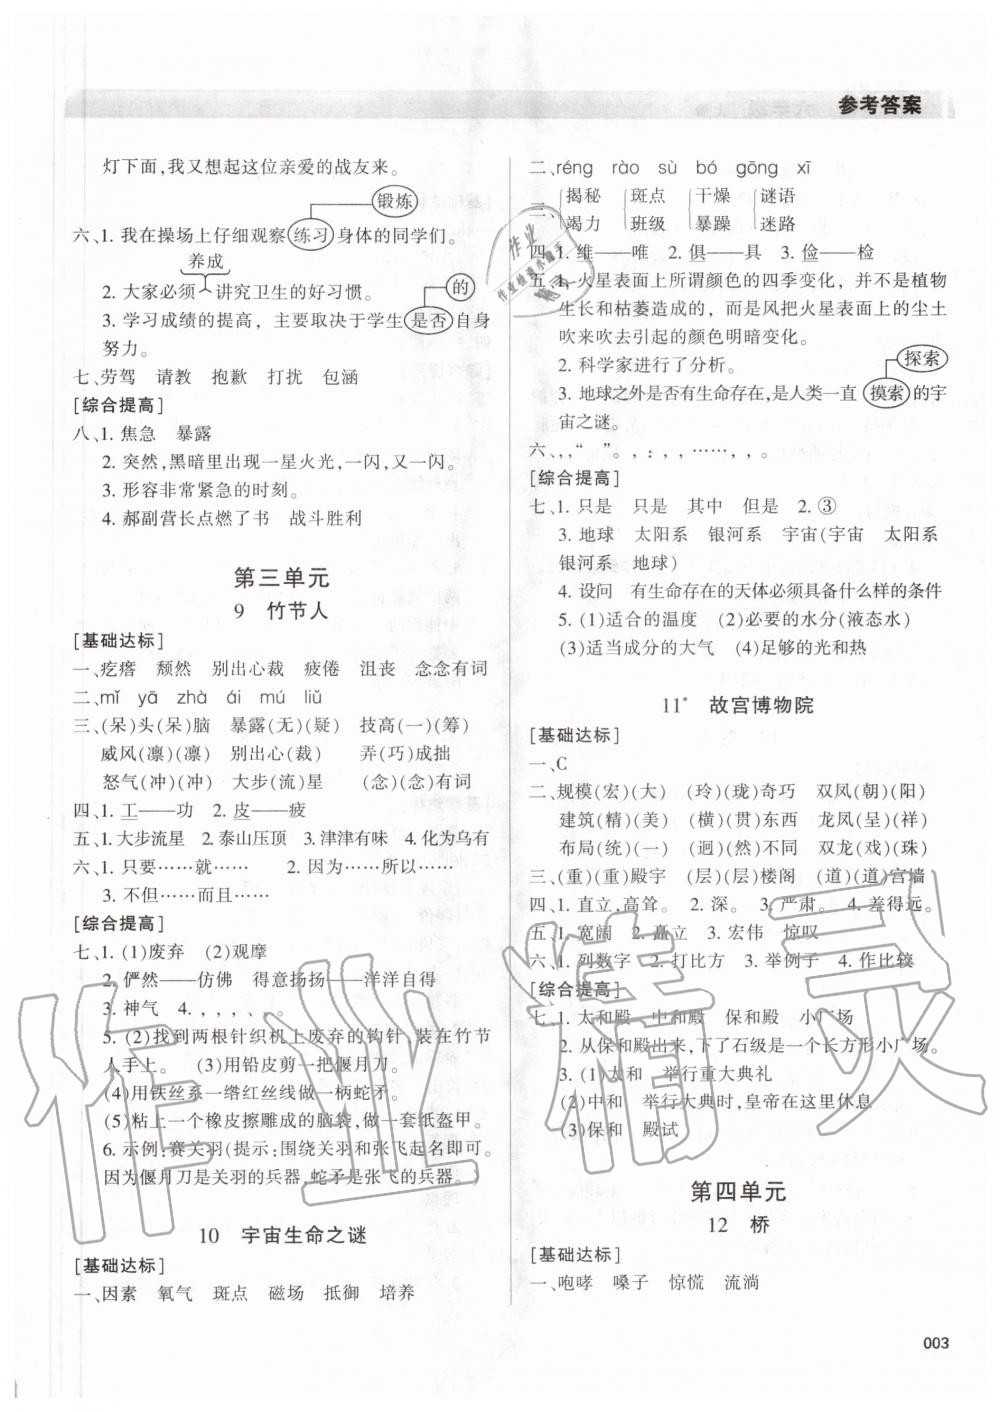 参考答案
灯下面,我又想起这位亲爱的战友来。
锻炼
六、1. 我在操场上仔细观察练习身体的同学们。
养成
2. 大家必须讲究卫生的好习惯。
的
3. 学习成绩的提高，主要取决于学生是否自身
努力。
七、劳驾 请教 抱歉 打扰 包涵
[综合提高]
八、1. 焦急 暴露
2. 突然,黑暗里出现一星火光,一闪,又一闪。
3. 形容非常紧急的时刻。
4. 郝副营长点燃了书 战斗胜利
第三单元
9 竹节人
[基础达标]
一、疙瘩 颓然 别出心裁 疲倦 沮丧 念念有词
二、mǐ yā zhà ái mú liǔ
三、(呆)头(呆)脑 暴露(无)(疑) 技高(一)(筹)
威风(凛)(凛) 别出心(裁) 弄(巧)成拙
怒气(冲)(冲) 大步(流)星 (念)(念)有词
四、1. 工——功 2. 皮——疲
五、1. 大步流星 2. 泰山压顶 3. 津津有味 4. 化为乌有
六、1. 只要……就…… 2. 因为……所以……
3. 不但……而且……
[综合提高]
七、1. (1)废弃 (2)观摩
2. 俨然——仿佛 得意扬扬——洋洋自得
3. 神气
4. 、、、、、。
5. (2)找到两根针织机上废弃的钩针,装在竹节
人手上。 (3)用铅皮剪一把偃月刀。
(4)用铁丝系一绺红丝线做一柄蛇矛。
(5)粘上一个橡皮擦雕成的脑袋,做一套纸盔甲。
6. 示例:赛关羽(提示:围绕关羽和张飞起名即可。
因为偃月刀是关羽的兵器,蛇矛是张飞的兵器。)
10 宇宙生命之谜
[基础达标]
一、因素 氧气 斑点 磁场 抵御 培养
二、réng rào sù bó gōng xī
三、揭秘 斑点 干燥 谜语
竭力 班级 暴躁 迷路
四、1. 维——唯 2. 俱——具 3. 俭——检
五、1. 火星表面上所谓颜色的四季变化，并不是植物
生长和枯萎造成的，而是风把火星表面上的尘土
吹来吹去引起的颜色明暗变化。
2. 科学家进行了分析。
探索
3. 地球之外是否有生命存在,是人类一直摸索的宇
宙之谜。
六、,,“ ”。,:,,……,,。
[综合提高]
七、1. 只是 只是 其中 但是 2. ③
3. 地球 太阳系 银河系 宇宙(宇宙 太阳系
银河系 地球)
4. 设问 有生命存在的天体必须具备什么样的条件
5. (1)适合的温度 (2)必要的水分(液态水)
(3)适当成分的大气 (4)足够的光和热
11* 故宫博物院
[基础达标]
一、C
二、规模(宏)(大) (玲)(珑)奇巧 双凤(朝)(阳)
建筑(精)(美) (横)(贯)东西 龙凤(呈)(祥)
布局(统)(一) (迥)(然)不同 双龙(戏)(珠)
三、(重)(重)殿宇 (层)(层)楼阁 (道)(道)宫墙
四、1. 直立,高耸。 2. 深。 3. 严肃。 4. 差得远。
五、1. 宽阔 2. 矗立 3. 宏伟 惊叹
六、1. 列数字 2. 打比方 3. 举例子 4. 作比较
[综合提高]
七、1. 太和殿 中和殿 保和殿 小广场
2. 从保和殿出来,下了石级是一个长方形小广场。
3. (1)太和 举行重大典礼
(2)中和 举行大典时,皇帝在这里休息
(3)保和 殿试
第四单元
12 桥
[基础达标]
一、咆哮 嗓子 惊慌 流淌
003
作业精灵